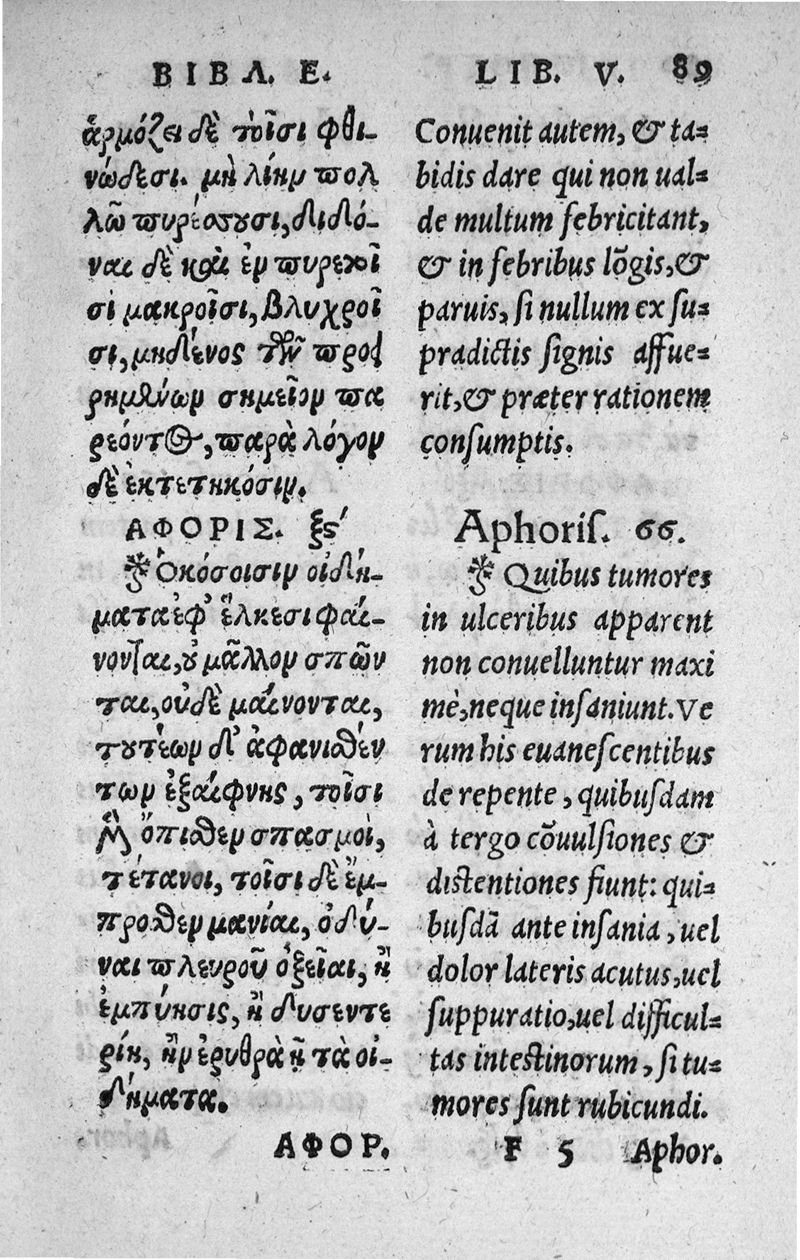 ΒΙΒΛ. Ε.
ἁρμόζει δὲ τοῖσι φθι-
νώδεσι. μὴ λίην πολ
λῶ πυρέσσουσι, διδό-
ναι δὲ καὶ ἐν πυρετοῖ
σι μακροῖσι, βλυχροῖ
σι, μηδενὸς τῶν προει
ρημένων σημεῖον πα
ρεόντος, παρὰ λόγον
δὲ ἐκτετηκόσιν.
ΑΦΟΡΙΣ. ξϛʹ
Ὁκόσοισιν οἰδή-
ματα ἐφ' ἕλκεσι φαί-
νονται, οὐ μᾶλλον σπῶν
ται, οὐδὲ μαίνονται,
τουτέων δ' ἀφανισθέν
των ἐξαίφνης, τοῖσι
μὲν ὄπισθεν σπασμοὶ,
τέτανοι, τοῖσι δὲ ἔμ-
προσθεν μανίαι, ὀδύ-
ναι πλευροῦ ὀξεῖαι, ἢ
ἐμπύησις, ἢ δυσεντε
ρίη, ἢν ἐρυθρὰ ᾖ τὰ οἰ-
δήματα.
ΑΦΟΡ.
LIB. V. 89
Conuenit autem, & ta-
bidis dare qui non ual-
de multum febricitant,
& in febribus lōgis, &
paruis, si nullum ex su-
pradictis signis affue-
rit, & præter rationem
consumptis.
Aphoris. 66.
Quibus tumores
in ulceribus apparent
non conuelluntur maxi
mè, neque insaniunt. Ve
rum his euanescentibus
de repente, quibusdam
à tergo cōuulsiones &
distentiones fiunt: qui-
busdā ante insania, uel
dolor lateris acutus, uel
suppuratio, uel difficul-
tas intestinorum, si tu-
mores sunt rubicundi.
F 5 Aphor.